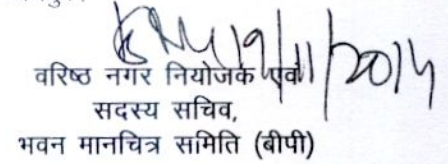 19/11/2014
वरिष्ठ नगर नियोजक एवं
सदस्य सचिव,
भवन मानचित्र समिति (बीपी)